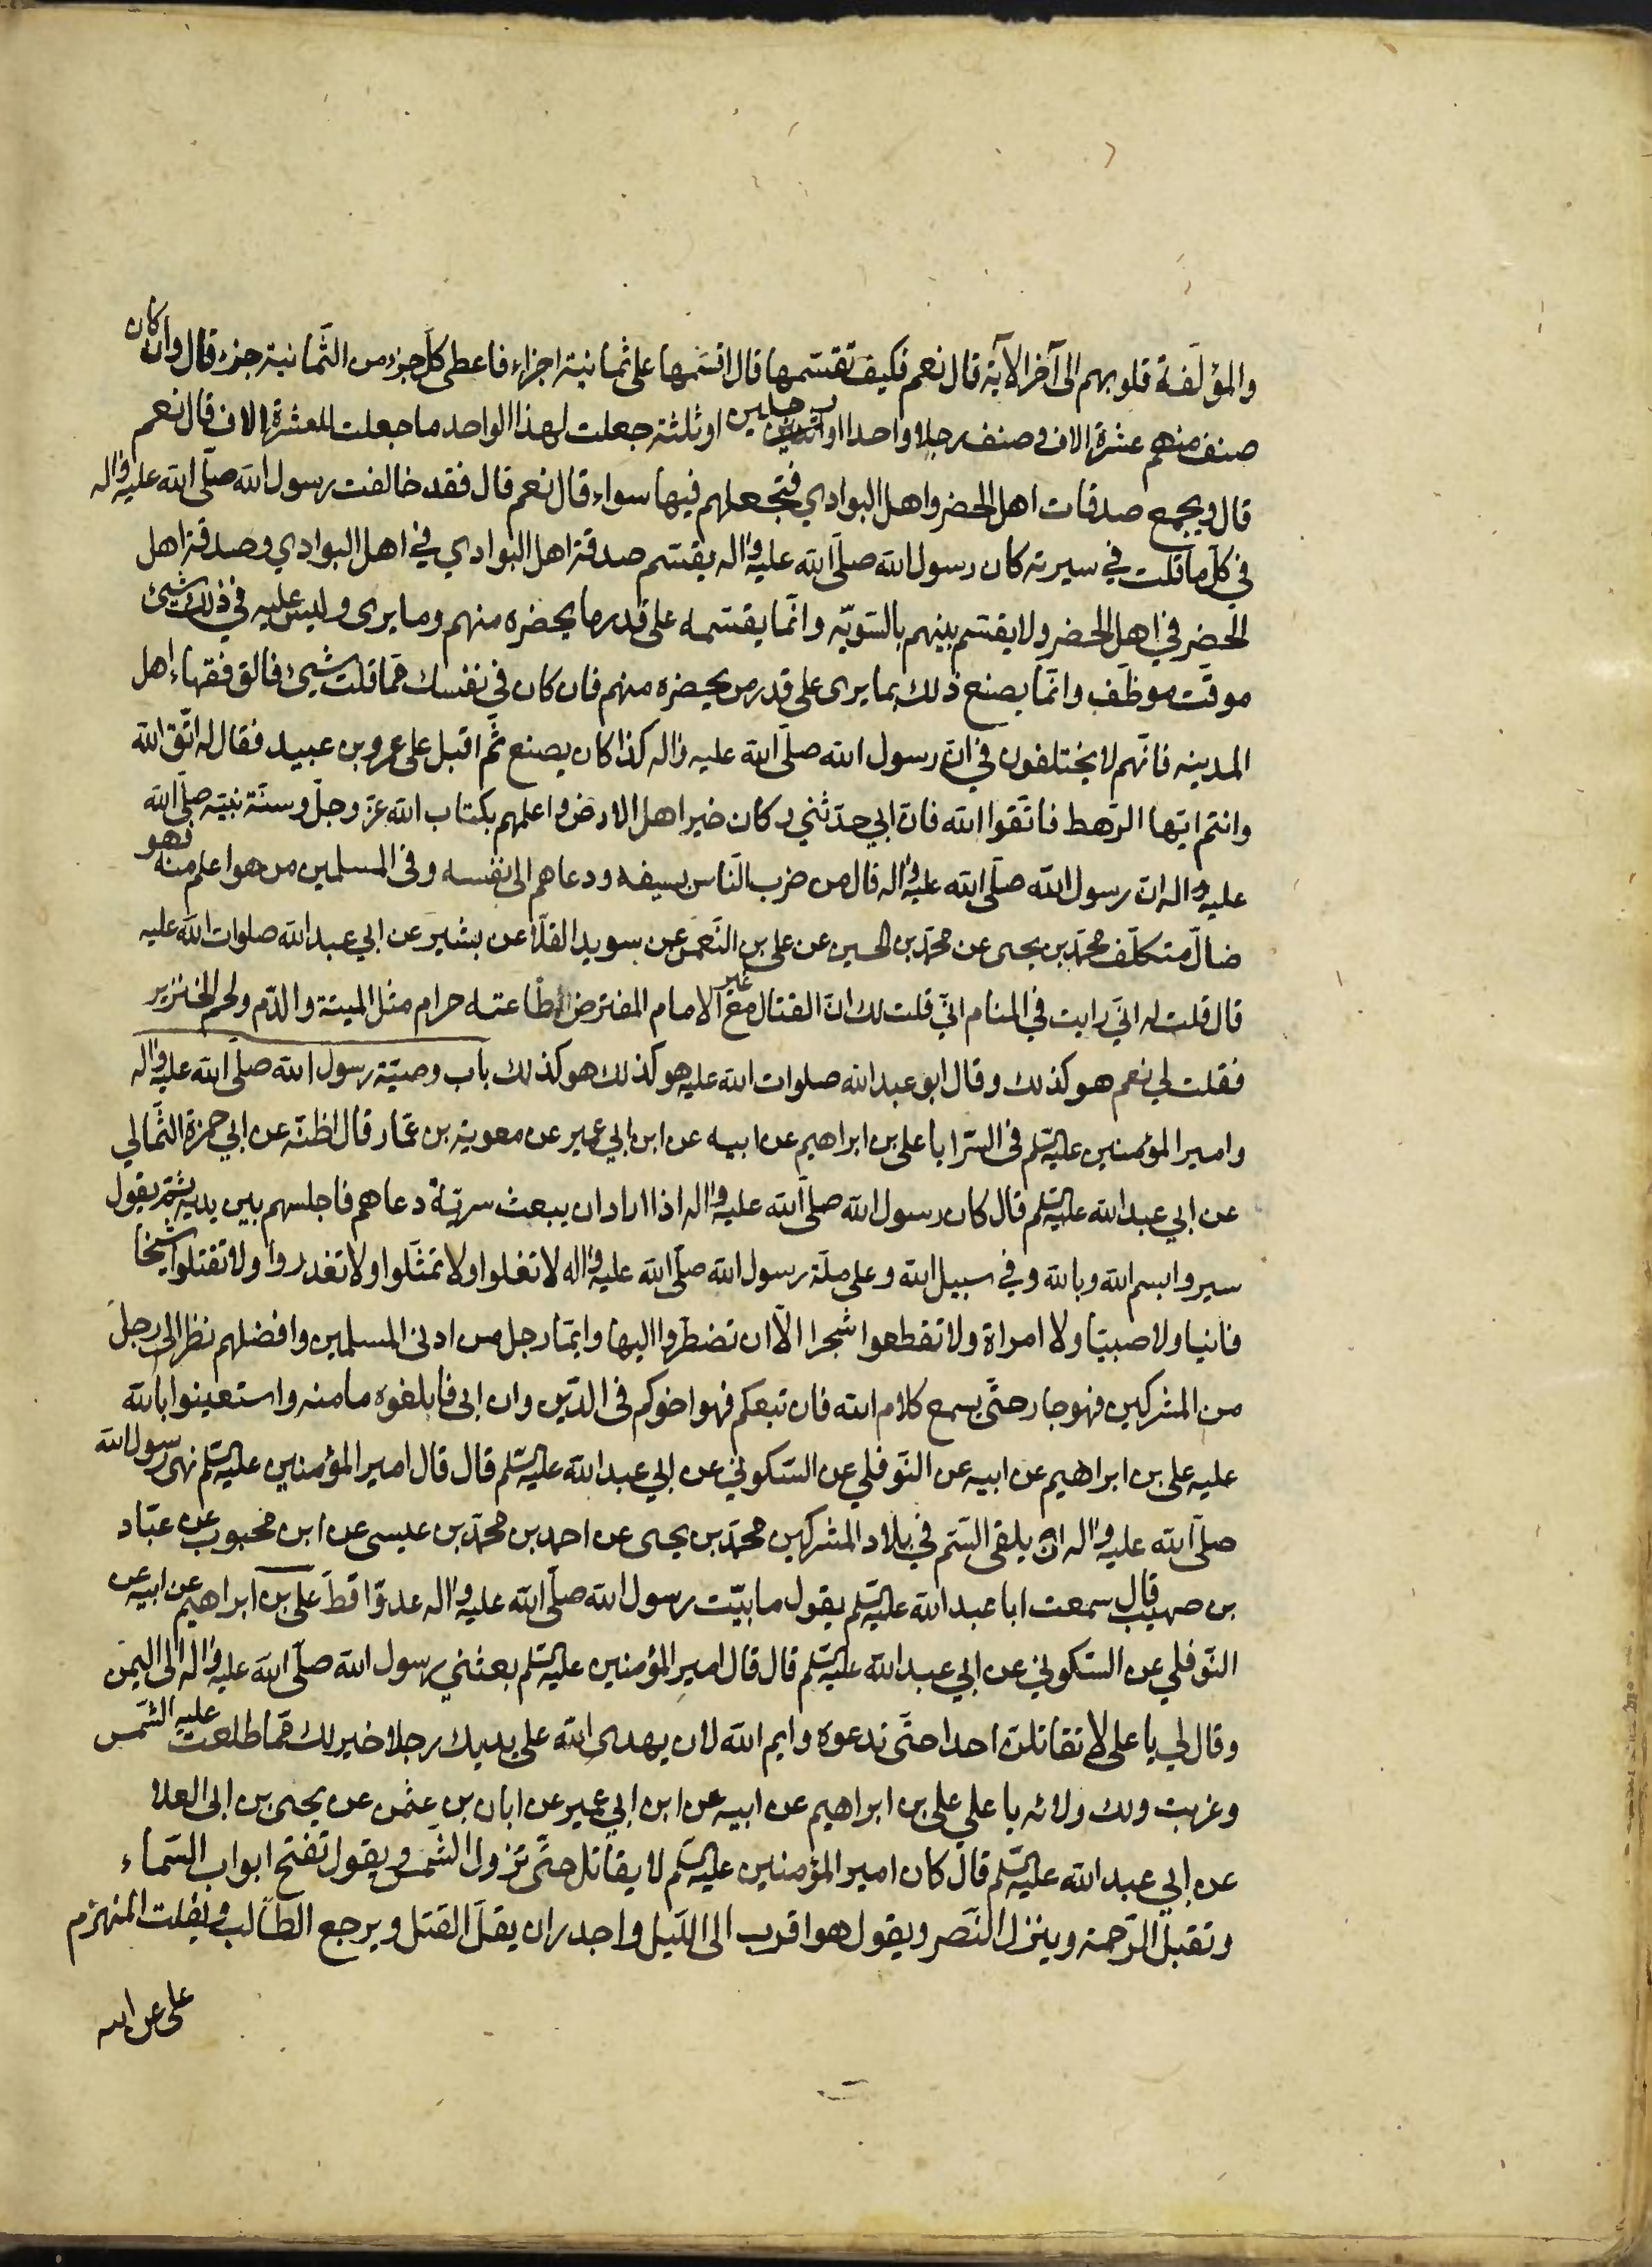 والمؤلّفة قلوبهم الى آخر الآية قال نعم فكيف تقسّمها قال اقسّمها على ثمانية اجزاء فاعطى كلّ جزء من الثمانية جزء قال وان كان
صنف منهم عشرة الاف وصنف رجلا واحدا او رجلين او ثلثة جعلت لهذا الواحد ما جعلت للعشرة الاف قال نعم
قال وتجمع صدقات اهل الحضر واهل البوادي فتجعلهم فيها سواء قال نعم قال فقد خالفت رسول الله صلّى الله عليه واله
في كلّ ما قلت في سيرته كان رسول الله صلّى الله عليه واله يقسّم صدقة اهل البوادي في اهل البوادي وصدقة اهل
الحضر في اهل الحضر ولا يقسّم بينهم بالسّويّة وانّما يقسّمه على قدر ما يحضره منهم وما يرى وليس عليه في ذلك شيئ
موقّت موظّف وانّما يصنع ذلك بما يرى على قدر من يحضره منهم فان كان في نفسك ممّا قلت شيئ فالق فقهاء اهل
المدينه فانّهم لا يختلفون في انّ رسول الله صلّى الله عليه واله كذا كان يصنع ثمّ اقبل على عمرو بن عبيد فقال له اتّق الله
وانتم ايّها الرّهط فاتّقوا الله فانّ ابي حدّثني وكان خير اهل الارض واعلمهم بكتاب الله عزّ وجلّ وسنّة نبيّه صلّى الله
عليه واله انّ رسول الله صلّى الله عليه واله قال من ضرب النّاس بسيفه ودعاهم الى نفسه وفى المسلمين من هو اعلم منه فهو
ضالّ متكلّف محمّد بن يحيى عن محمّد بن الحسين عن على بن النّعمن عن سويد القلّا عن بشير عن ابي عبد الله صلوات الله عليه
قال قلت له انّي رايت في المنام انّي قلت لك انّ القتال مع غير الامام المفترض طاعته حرام مثل الميتة والدّم ولحم الخنزير
فقلت لي نعم هو كذلك وقال ابو عبد الله صلوات الله عليه هو كذلك هو كذلك باب وصيّة رسول الله صلّى الله عليه واله
وامير المؤمنين عليه السّلم فى السّرايا على بن ابراهيم عن ابيه عن ابن ابي عمير عن معوية بن عمّار قال اظنّه عن ابي حمزة الثّمالي
عن ابي عبد الله عليه السّلم قال كان رسول الله صلّى الله عليه واله اذا اراد ان يبعث سريّة دعاهم فاجلسهم بين يديه ثمّ يقول
سيروا بسم الله وبالله وفي سبيل الله وعلى ملّة رسول الله صلّى الله عليه واله لا تغلوا ولا تمثّلوا ولا تغدروا ولا تقتلوا شيخا
فانيا ولا صبيّا ولا امراة ولا تقطعوا شجرا الّا ان تضطرّوا اليها وايّما رجل من ادنى المسلمين وافضلهم نظر الى رجل
من المشركين فهو جار حتّى يسمع كلام الله فان تبعكم فهو اخوكم فى الدّين وان ابى فابلغوه مامنه واستعينوا بالله
عليه على بن ابراهيم عن ابيه عن النّوفلي عن السّكوني عن ابي عبد الله عليه السّلم قال قال امير المؤمنين عليه السّلم نهى رسول الله
صلّى الله عليه واله ان يلقى السّم في بلاد المشركين محمّد بن يحيى عن احمد بن محمّد بن عيسى عن ابن محبوب عن عبّاد
بن صهيب قال سمعت ابا عبد الله عليه السّلم يقول ما بيّت رسول الله صلّى الله عليه واله عدوّا قطّ على بن ابراهيم عن ابيه عن
النّوفلي عن السّكوني عن ابي عبد الله عليه السّلم قال قال امير المؤمنين عليه السّلم بعثني رسول الله صلّى الله عليه واله الى اليمن
وقال لي يا على لا تقاتلنّ احدا حتّى تدعوه وايم الله لان يهدى الله على يديك رجلا خير لك ممّا طلعت عليه الشّمس
وغربت ولك ولائه يا علي على بن ابراهيم عن ابيه عن ابن ابي عمير عن ابان بن عثمن عن يحيى بن ابى العلا
عن ابي عبد الله عليه السّلم قال كان امير المؤمنين عليه السّلم لا يقاتل حتّى تزول الشّمس ويقول تفتح ابواب السّماء
وتقبل الرّحمة وينزل النّصر ويقول هو اقرب الى اللّيل واجدر ان يقلّ القتل ويرجع الطّالب ويفلت المنهزم
على عن ابيه